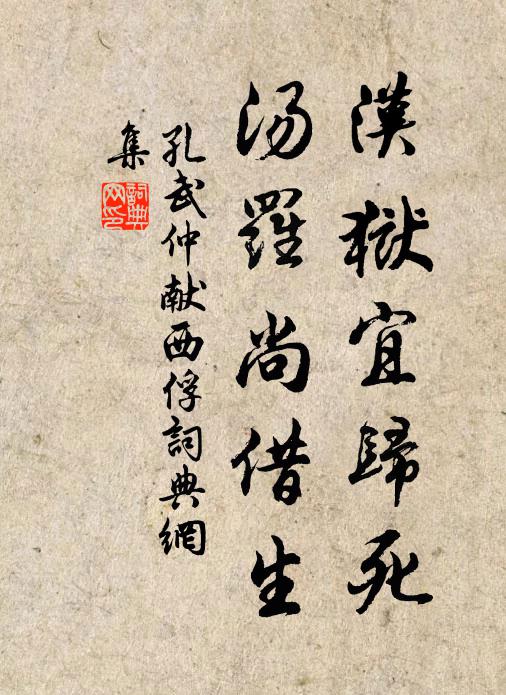 漢獄宜歸死
湯羅尚借生
孔武仲献西俘詞典網
集
詞典
网印